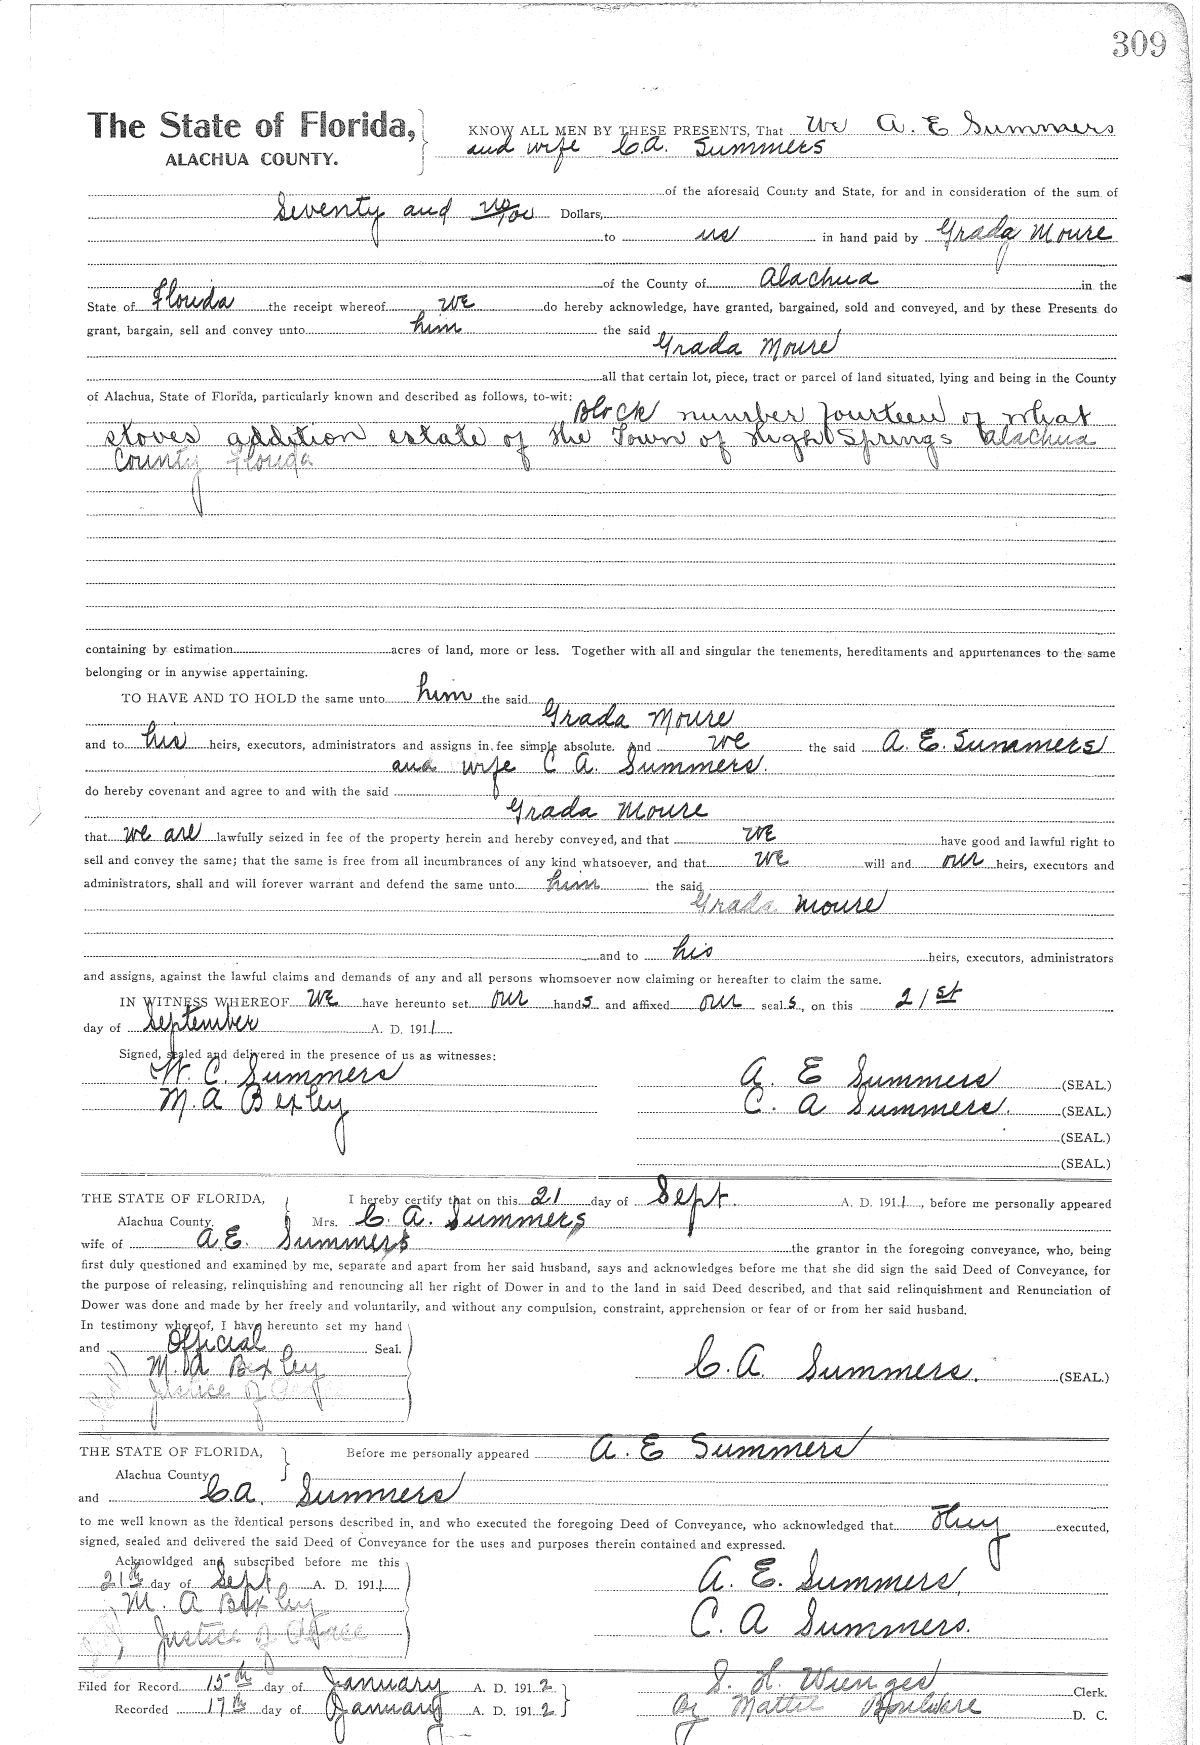 309
The State of Florida,
ALACHUA COUNTY.
KNOW ALL MEN BY THESE PRESENTS, That We A. E Summers
and wife C.A. Summers
of the aforesaid County and State, for and in consideration of the sum of
Seventy and no/00 Dollars,
to us in hand paid by Grada Moure
of the County of Alachua in the
State of Florida the receipt whereof we do hereby acknowledge, have granted, bargained, sold and conveyed, and by these Presents do
grant, bargain, sell and convey unto him the said
Grada Moure
all that certain lot, piece, tract or parcel of land situated, lying and being in the County
of Alachua, State of Florida, particularly known and described as follows, to-wit:
Block number fourteen of what
stoves addition estate of the Town of High Springs Alachua
County Florida
containing by estimation acres of land, more or less. Together with all and singular the tenements, hereditaments and appurtenances to the same
belonging or in anywise appertaining.
TO HAVE AND TO HOLD the same unto him the said
Grada Moure
and to his heirs, executors, administrators and assigns in fee simple absolute. And we the said A. E. Summers
and wife C A. Summers.
do hereby covenant and agree to and with the said
Grada Moure
that we are lawfully seized in fee of the property herein and hereby conveyed, and that we have good and lawful right to
sell and convey the same; that the same is free from all incumbrances of any kind whatsoever, and that we will and our heirs, executors and
administrators, shall and will forever warrant and defend the same unto him the said
Grada Moure
and to his heirs, executors, administrators
and assigns, against the lawful claims and demands of any and all persons whomsoever now claiming or hereafter to claim the same.
IN WITNESS WHEREOF We have hereunto set our hands and affixed our seals, on this 21st
day of September A. D. 1911
Signed, sealed and delivered in the presence of us as witnesses:
W. C. Summers
A. E Summers (SEAL.)
M. A Bexley
C. A Summers. (SEAL.)
(SEAL.)
(SEAL.)
THE STATE OF FLORIDA,
Alachua County.
I hereby certify that on this 21 day of Sept. A. D. 1911, before me personally appeared
Mrs. C. A. Summers
wife of A.E. Summers the grantor in the foregoing conveyance, who, being
first duly questioned and examined by me, separate and apart from her said husband, says and acknowledges before me that she did sign the said Deed of Conveyance, for
the purpose of releasing, relinquishing and renouncing all her right of Dower in and to the land in said Deed described, and that said relinquishment and Renunciation of
Dower was done and made by her freely and voluntarily, and without any compulsion, constraint, apprehension or fear of or from her said husband.
In testimony whereof, I have hereunto set my hand
and Official Seal.
M. A Bexley
Justice of Peace
C. A. Summers. (SEAL.)
THE STATE OF FLORIDA,
Alachua County
Before me personally appeared A. E Summers
and C.A. Summers
to me well known as the identical persons described in, and who executed the foregoing Deed of Conveyance, who acknowledged that they executed,
signed, sealed and delivered the said Deed of Conveyance for the uses and purposes therein contained and expressed.
Acknowldged and subscribed before me this
21th day of Sept A. D. 1911
M. A Bexley
Justice of Peace
A. E. Summers
C. A Summers.
Filed for Record 15th day of January A. D. 1912
Recorded 17th day of January A. D. 1912
S. H. Wienges Clerk.
By Mattie Boulware D. C.